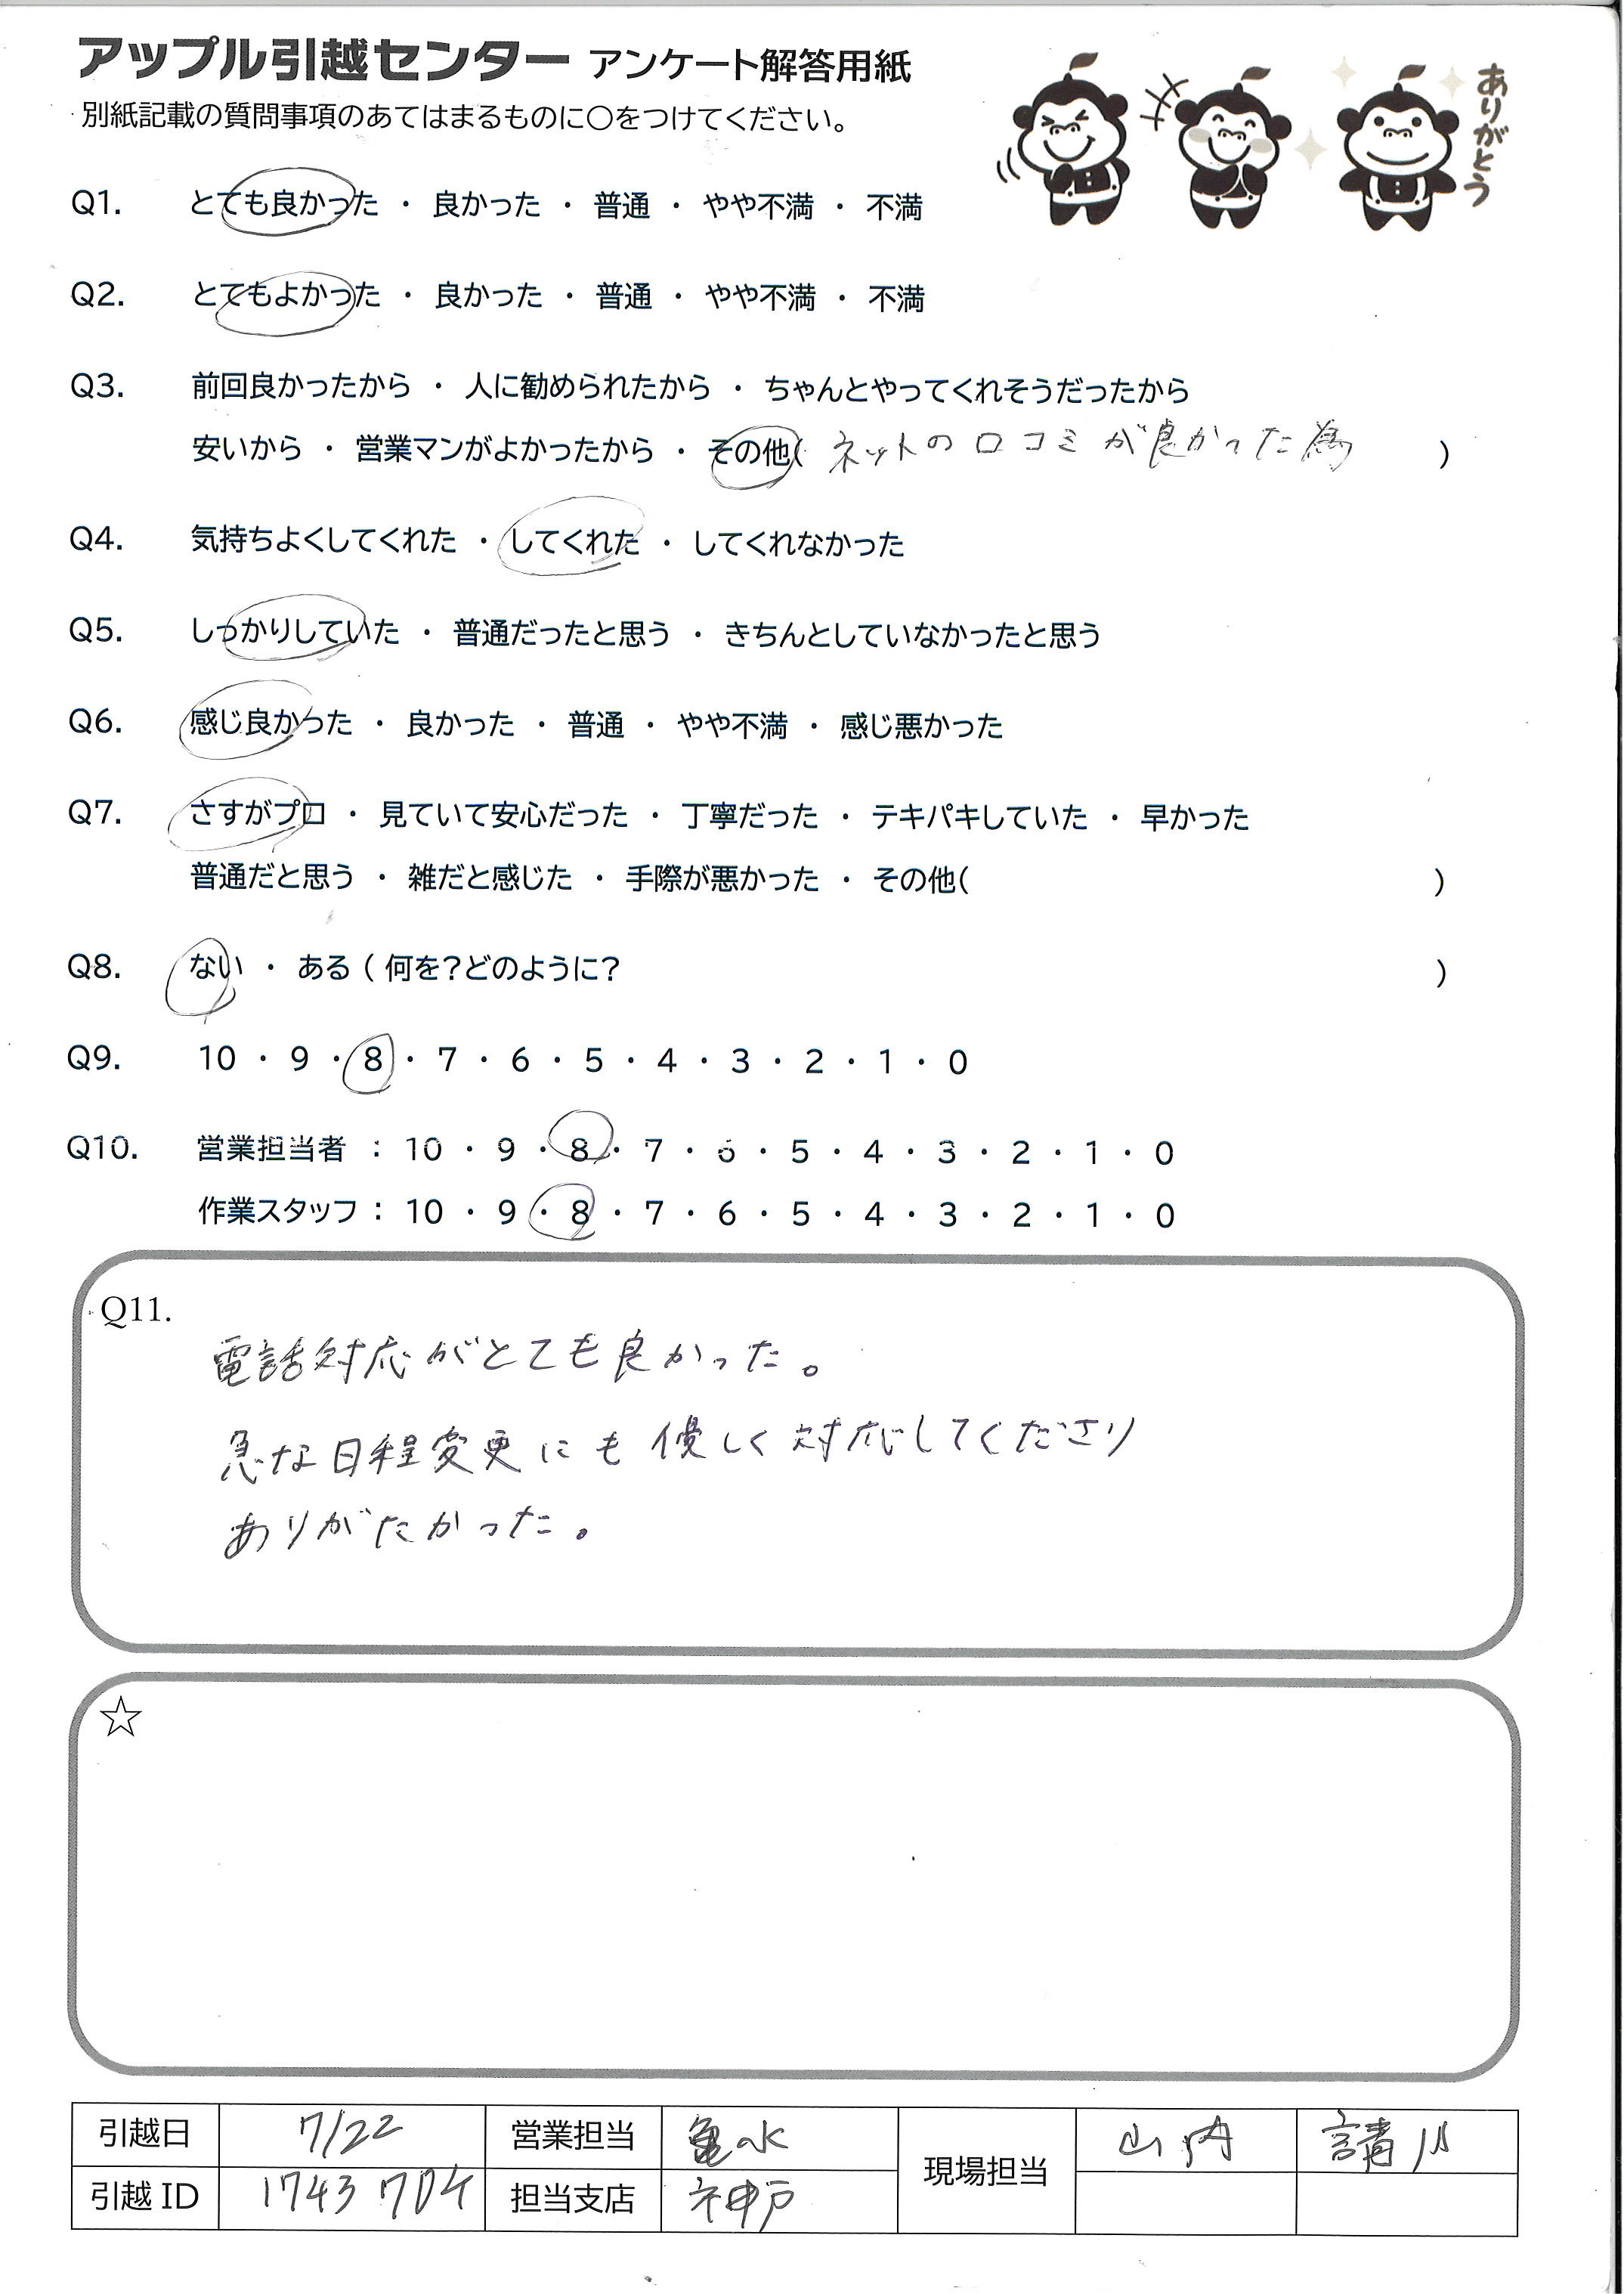 アップル引越センター アンケート解答用紙
別紙記載の質問事項のあてはまるものに〇をつけてください。
ありがとう
Q1. とても良かった ・ 良かった ・ 普通 ・ やや不満 ・ 不満
Q2. とてもよかった ・ 良かった ・ 普通 ・ やや不満 ・ 不満
Q3. 前回良かったから ・ 人に勧められたから ・ ちゃんとやってくれそうだったから
安いから ・ 営業マンがよかったから ・ その他( ネットの口コミが良かった為 )
Q4. 気持ちよくしてくれた ・ してくれた ・ してくれなかった
Q5. しっかりしていた ・ 普通だったと思う ・ きちんとしていなかったと思う
Q6. 感じ良かった ・ 良かった ・ 普通 ・ やや不満 ・ 感じ悪かった
Q7. さすがプロ ・ 見ていて安心だった ・ 丁寧だった ・ テキパキしていた ・ 早かった
普通だと思う ・ 雑だと感じた ・ 手際が悪かった ・ その他( )
Q8. ない ・ ある ( 何を?どのように? )
Q9. 10 ・ 9 ・ 8 ・ 7 ・ 6 ・ 5 ・ 4 ・ 3 ・ 2 ・ 1 ・ 0
Q10. 営業担当者 : 10 ・ 9 ・ 8 ・ 7 ・ 6 ・ 5 ・ 4 ・ 3 ・ 2 ・ 1 ・ 0
作業スタッフ : 10 ・ 9 ・ 8 ・ 7 ・ 6 ・ 5 ・ 4 ・ 3 ・ 2 ・ 1 ・ 0
Q11.
電話対応がとても良かった。
急な日程変更にも優しく対応してくださり
ありがたかった。
☆
引越日 7/22 営業担当 亀水 現場担当 山内
引越 ID 1743704 担当支店 神戸